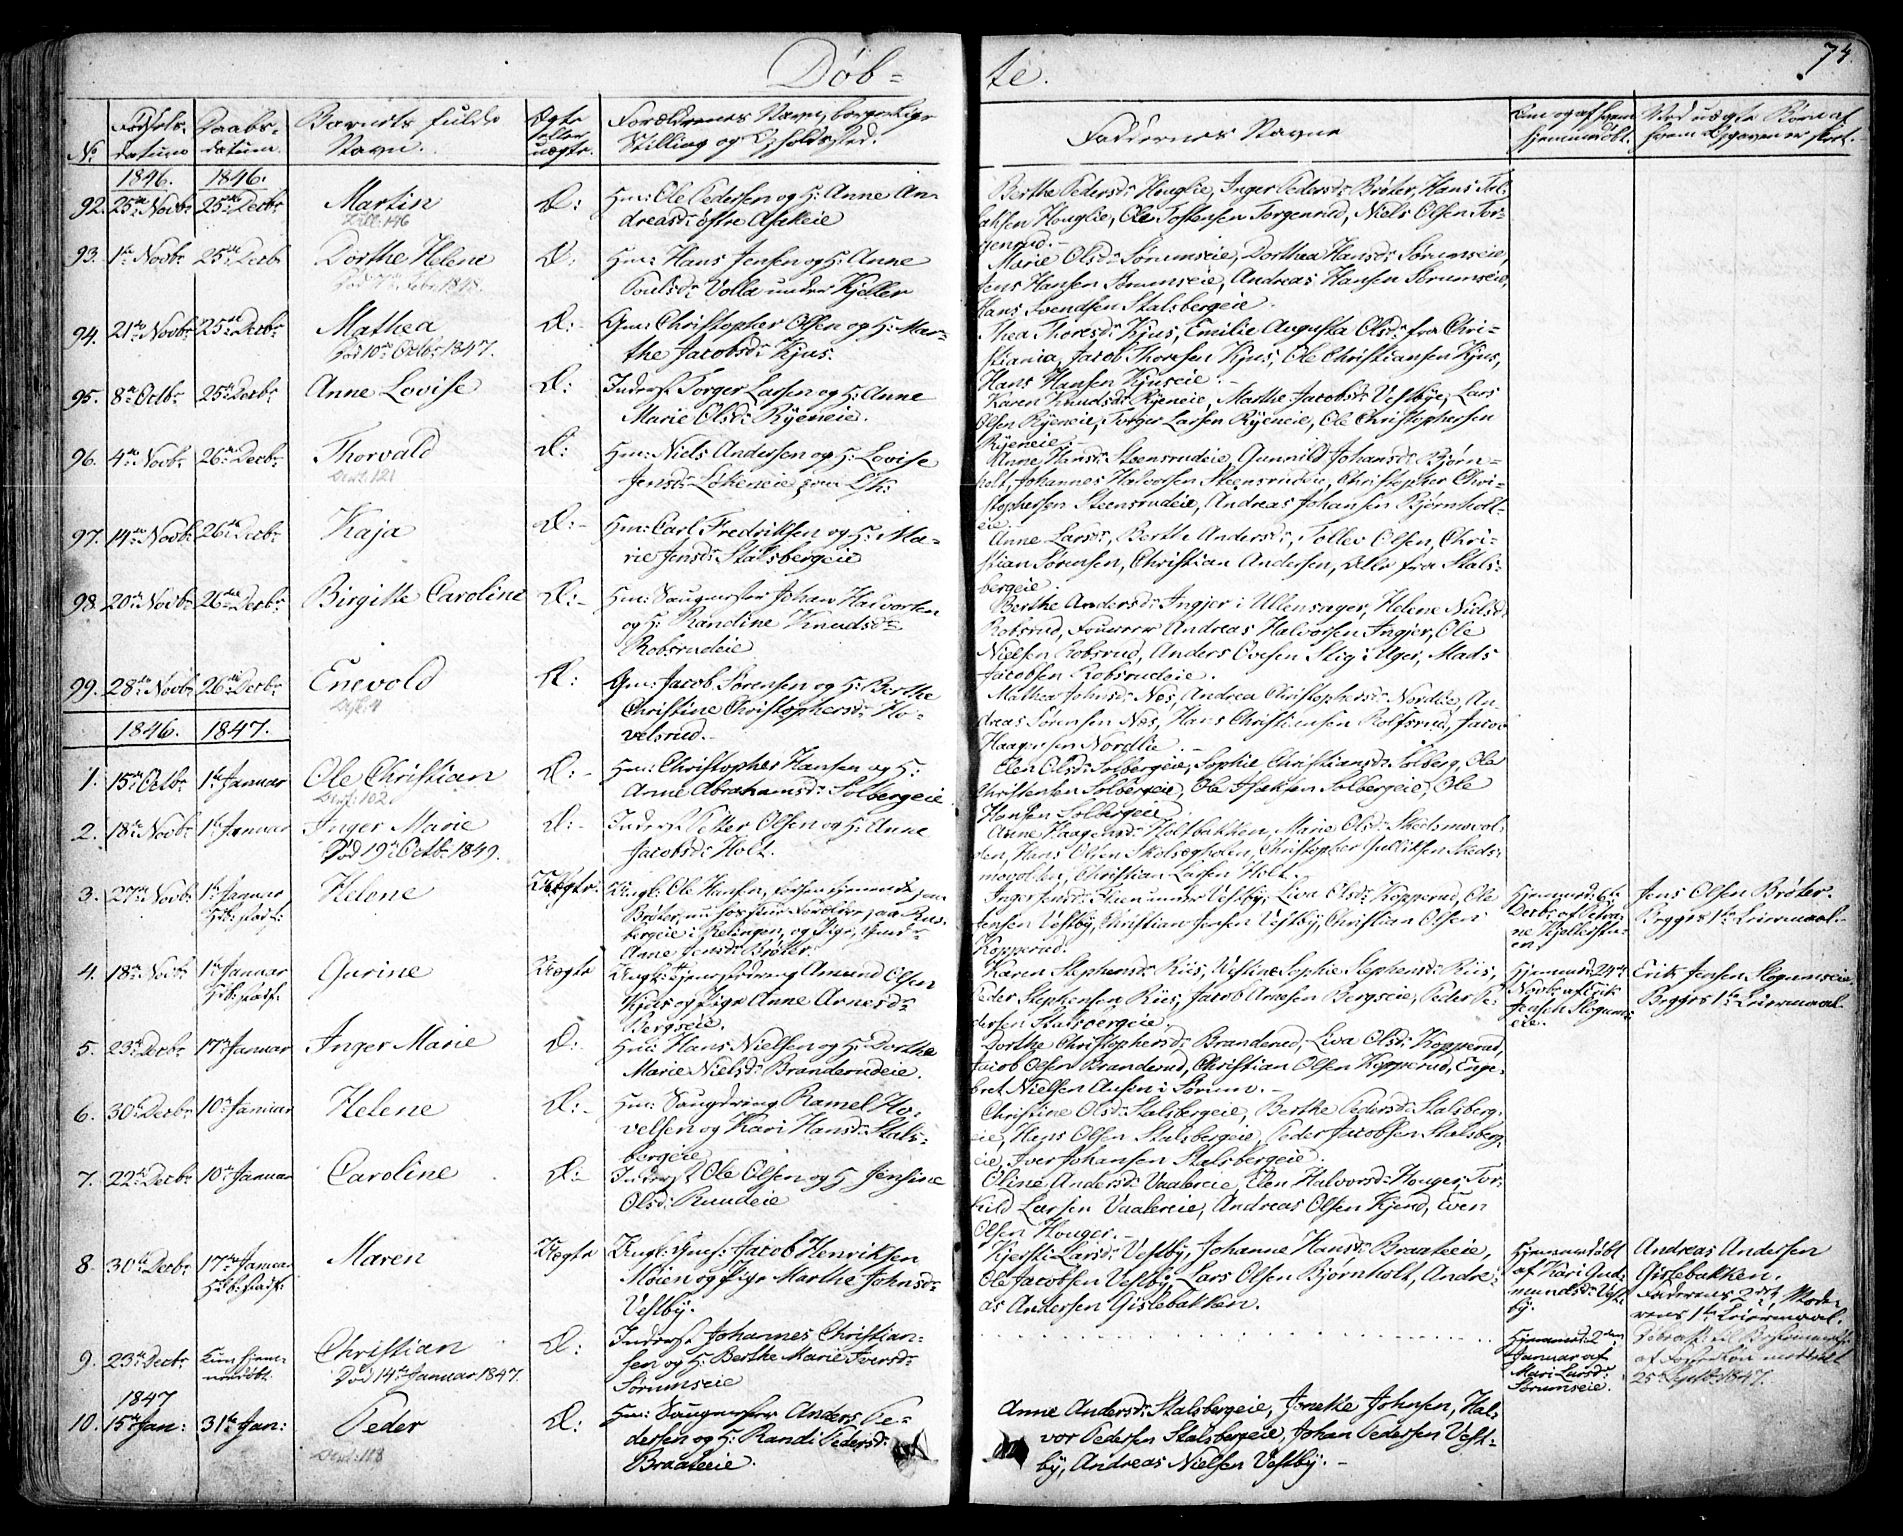 Døb-
te.
74.
No.
Fødsels-
datum
Daabs-
datum.
Barnets fulde
Navn.
Ægte
eller
uægte.
Forældrenes Navn, borgerlige
Stilling og Opholdssted.
Faddernes Navne
Om og af hvem
hjemmedøbt.
Ved uægte Børn af
hvem Opgaven er skeet.
1846. 1846.
92. 25de Novbr 25de Decbr Martin
Æ: Hm: Ole Pedersen og H: Anne An-
dreasdr østre Asakeie
Berthe Pedersdr Houglie, Inger Pedersdr Brøter, Hans
Houglie, Ole Tostensen Torgenrud, Niels Olsen Tor-
genrud.-
93. 1te Novbr 25de Decbr Dorthe Helene
Æ: Hm: Hans Jensen og H: Anne
Volla under Kjeller
Marie Olsdr Sørumseie, Dorthea Hansdr Sørumseie,
Jens Hansen Sørumseie, Andreas Hansen Sørumseie,
Hans Svendsen Stalsbergeie.
94. 21de Novbr 25de Decbr Mathea
Død 10de Octbr 1847.
Æ:- Gm: Christopher Olsen og H: Mar-
the Jacobsdr Kjus.
Thea Thoresdr Kjus, Emilie Augusta Olsdr fra Chri-
stiania, Jacob Thoresen Kjus, Ole Christiansen Kjus,
Hans Hansen Kjuseie.-
95. 8de Octbr 25de Decbr Anne Lovise
Æ: Inderst Torger Larsen og H: Anne
Marie Olsdr Ryeneie.
Karen Knudsdr Ryeneie, Marthe Jacobsdr Vestbye, Lars
Olsen Ryeneie, Torger Larsen Ryeneie, Ole Christophersen
Ryeneie.-
96. 4de Novbr 26de Decbr Thorvald
121
Æ: Hm: Niels Andersen og H: Lovise
Jensdr
Anne Hansdr Steensrudeie, Gunnild Johansdr Bjørn-
holt, Johannes Halvorsen Steensrudeie, Christopher Chri-
stophersen Steensrudeie, Andreas Johansen Bjørnholt-
eie
97. 14de Novbr 26de Decbr Kaja
Æ:- Hm: Carl Fredriksen og H: Ma-
rie Jensdr Stalsbergeie
Anne Larsdr, Berthe Andersdr, Tollev Olsen, Chri-
stian Sørensen, Christian Andersen, alle fra Stals-
bergeie.
98. 20de Novbr 26de Decbr Birgitte Caroline
Æ:- Hm: Saugmester Johan Halvorsen
og H: Randine Knudsdr
Robsrudeie
Berthe Andersdr Ingjer i Ullensager, Helene Nielsdr
Robsrud, Andreas Halvorsen Ingjer, Ole
Nielsen Robsrud, Anders Evesen Stig i Uger, Mads
Jacobsen Robsrudeie.
99. 28de Novbr 26de Decbr Enevold
Æ: Gm: Jacob Sørensen og H: Berthe
Christine Christophersdr Ho-
velsrud.-
Mathea Johnsdr Næs, Andrea Christophersdr Nordlie, An-
dreas Sørensen Næs, Hans Christiansen Rolfsrud, Jacob
Haagensen Nordlie.-
1846. 1847.
1. 15de Octbr 1te Januar Ole Christian
102
Æ:- Hm: Christopher Hansen og H:
Anne Abrahamsdr Solbergeie
Elen Olsdr Solbergeie, Sophie Christiansdr Solberg, Ole
Christensen Solbergeie, Ole Isaksen Solbergeie, Ole
Hansen Solbergeie
2. 18de Novbr 1te Januar Inger Marie
Død 19de Octbr 1849.
Æ:- Inderst Petter Olsen og H: Anne
Jacobsdr Holt.
Anne Haagensdr Holtbakken, Marie Olsdr Skedsmovol-
den, Hans Olsen Skolsegholen, Christopher Gulliksen Skeds-
movolden, Christian Larsen Holt.
3. 27de Novbr 1te Januar Helene
Uægte: Ungk: Ole Hansen,
Brøter,
og Pige,
Anne Jensdr Brøter.
Inger Jensdr under Vestby, Liva Olsdr Kopperud, Ole
Jensen Vestby, Christian Jensen Vestby, Christian Olsen
Kopperud.
Hjemmed: 6te
Decbr af
Jens Olsen Brøter.
Begges 1te Leiermaal.
4. 18de Novbr 1te Januar Gurine
Uægte Ungk: Tjenestedreng Amund Olsen
Kjus og Pige Anne Arnesdr
Bergseie.
Karen Stephensdr Riis, Sophie Stephensdr Riis,
Peder Stephensen Riis, Jacob Arnesen Bergseie, Peder Pe-
dersen Stalsbergeie.
Hjemmed: 24de
Novbr af Erik
Jensen Slogums-
eie.
Erik Jensen Slogumseie
Begges 1te Leiermaal
5. 23de Decbr 17de Januar Inger Marie
Æ: Hm: Hans Nielsen og H: Dorthe
Marie Nielsdr Branderudeie.
Dorthe Christophersdr Branderud, Liva Olsdr Kopperud,
Jacob Olsen Branderud, Christian Olsen Kopperud, Enge-
bret Nielsen Ausen i Sørum.-
6. 30te Decbr 10de Januar Helene
Æ:- Hm: Saugdreng Ramel Ho-
velsen og Kari Hansdr Stals-
bergeie
Christine Olsdr Stalsbergeie, Berthe Pedersdr Stalsberg-
eie, Hans Olsen Stalsbergeie, Peder Jacobsen Stalsberg-
eie, Iver Johansen Stalsbergeie.
7. 22de Decbr 10de Januar Caroline
Æ:- Inderst Ole Olsen og H Jensine
Olsdr Ruudeie
Oline Andersdr Vaalereie, Elen Halvorsdr Houger, Tor-
kild Larsen Vaalereie, Andreas Olsen Kjerd, Even
Olsen Houger.-
8. 30te Decbr 17de Januar Maren
Uægte Ungk: Gmf: Jacob Henriksen
Moien og Pige Marthe Johnsdr
Vestby.
Kjersti Larsdr Vestby, Johanne Hansdr Braateeie,
Ole Jacobsen Vestby, Lars Olsen Bjørnholt, Andre-
as Andersen Gislebakken.
Hjemmedøbt
af Kari Gud-
mundsdr Vest-
by.
Andreas Andersen
Gislebakken.
Faderens 2det, Mode-
rens 1te Leiermaal.
9. 23de Decbr Kun hjem-
medøbt. Christian
Død 14de Januar 1847.
Æ: Inderst Johannes Christian-
sen og H: Berthe Marie Iversdr
Sørumseie
Hjemmed: 2den
Januar af
Mari Larsdr
Sørumseie.
25de Septbr 1847.
1847
10. 15de Jan: 31te Jan: Peder
113
Æ: Hm: Saugmester Anders Pe-
dersen og H: Randi Pedersdr
Braateeie.
Anne Andersdr Stalsbergeie, Johnsen, Hal-
vor Pedersen Stalsbergeie, Johan Pedersen Vest-
by, Andreas Nielsen Vestby.-